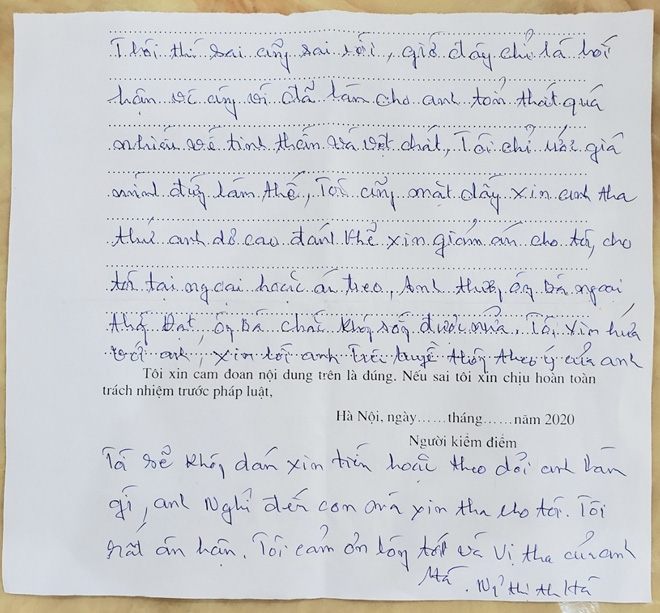 Thôi thì sai cũng sai rồi, giờ đây chỉ là hối
hận vì cũng vì đã làm cho anh tổn thất quá
nhiều về tinh thần và vật chất, Tôi chỉ ước giá
mình đừng làm thế, Tôi cũng mặt dầy xin anh tha
thứ anh dơ cao đánh khẽ xin giảm án cho tôi, cho
tôi tại ngoại hoặc án treo, Anh thương ông bà ngoại
thằng Đạt, ông bà chắc không sống được nữa. Tôi xin hứa
với anh, xin lỗi anh trên truyền thông theo ý của anh
Tôi xin cam đoan nội dung trên là đúng. Nếu sai tôi xin chịu hoàn toàn
trách nhiệm trước pháp luật,
Hà Nội, ngày......tháng......năm 2020
Người kiểm điểm
Tôi sẽ không dám xin tiền hoặc theo dõi anh làm
gì, anh Nghĩ đến con mà xin tha cho tôi. Tôi
rất ân hận. Tôi cảm ơn lòng tốt và vị tha của anh
Hà